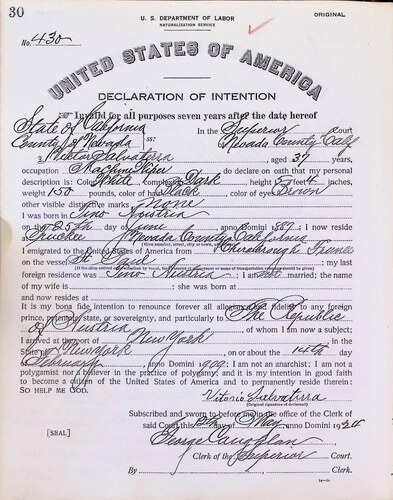 30
U. S. DEPARTMENT OF LABOR
NATURALIZATION SERVICE
ORIGINAL
No. 430
UNITED STATES OF AMERICA
DECLARATION OF INTENTION
Invalid for all purposes seven years after the date hereof
State of California
County of Nevada ss:
In the Superior Court
Nevada County Calif
I, Viktor Salvaterra aged 37 years,
occupation Machine Wiper, do declare on oath that my personal
description is: Color White, complexion Dark, height 5 feet 4 inches,
weight 150 pounds, color of hair Black, color of eyes Brown
other visible distinctive marks None
I was born in Tino Austria
on the 25th day of June, anno Domini 1887; I now reside
at Truckee Nevada County, California
I emigrated to the United States of America from Cherbourgh France
on the vessel St Paul; my last
foreign residence was Tino Austria; I am not married; the name
of my wife is; she was born at
and now resides at
It is my bona fide intention to renounce forever all allegiance and fidelity to any foreign
prince, potentate, state, or sovereignty, and particularly to The Republic
of Austria, of whom I am now a subject;
I arrived at the port of New York, in the
State of New York, on or about the 14th day
of February, anno Domini 1909; I am not an anarchist; I am not a
polygamist nor a believer in the practice of polygamy; and it is my intention in good faith
to become a citizen of the United States of America and to permanently reside therein:
SO HELP ME GOD.
Vitorio Salvaterra
(Original signature of declarant)
Subscribed and sworn to before me in the office of the Clerk of
said Court this day of May, anno Domini 1924
[SEAL]
George Caughlan
Clerk of the Superior Court.
By, Clerk.